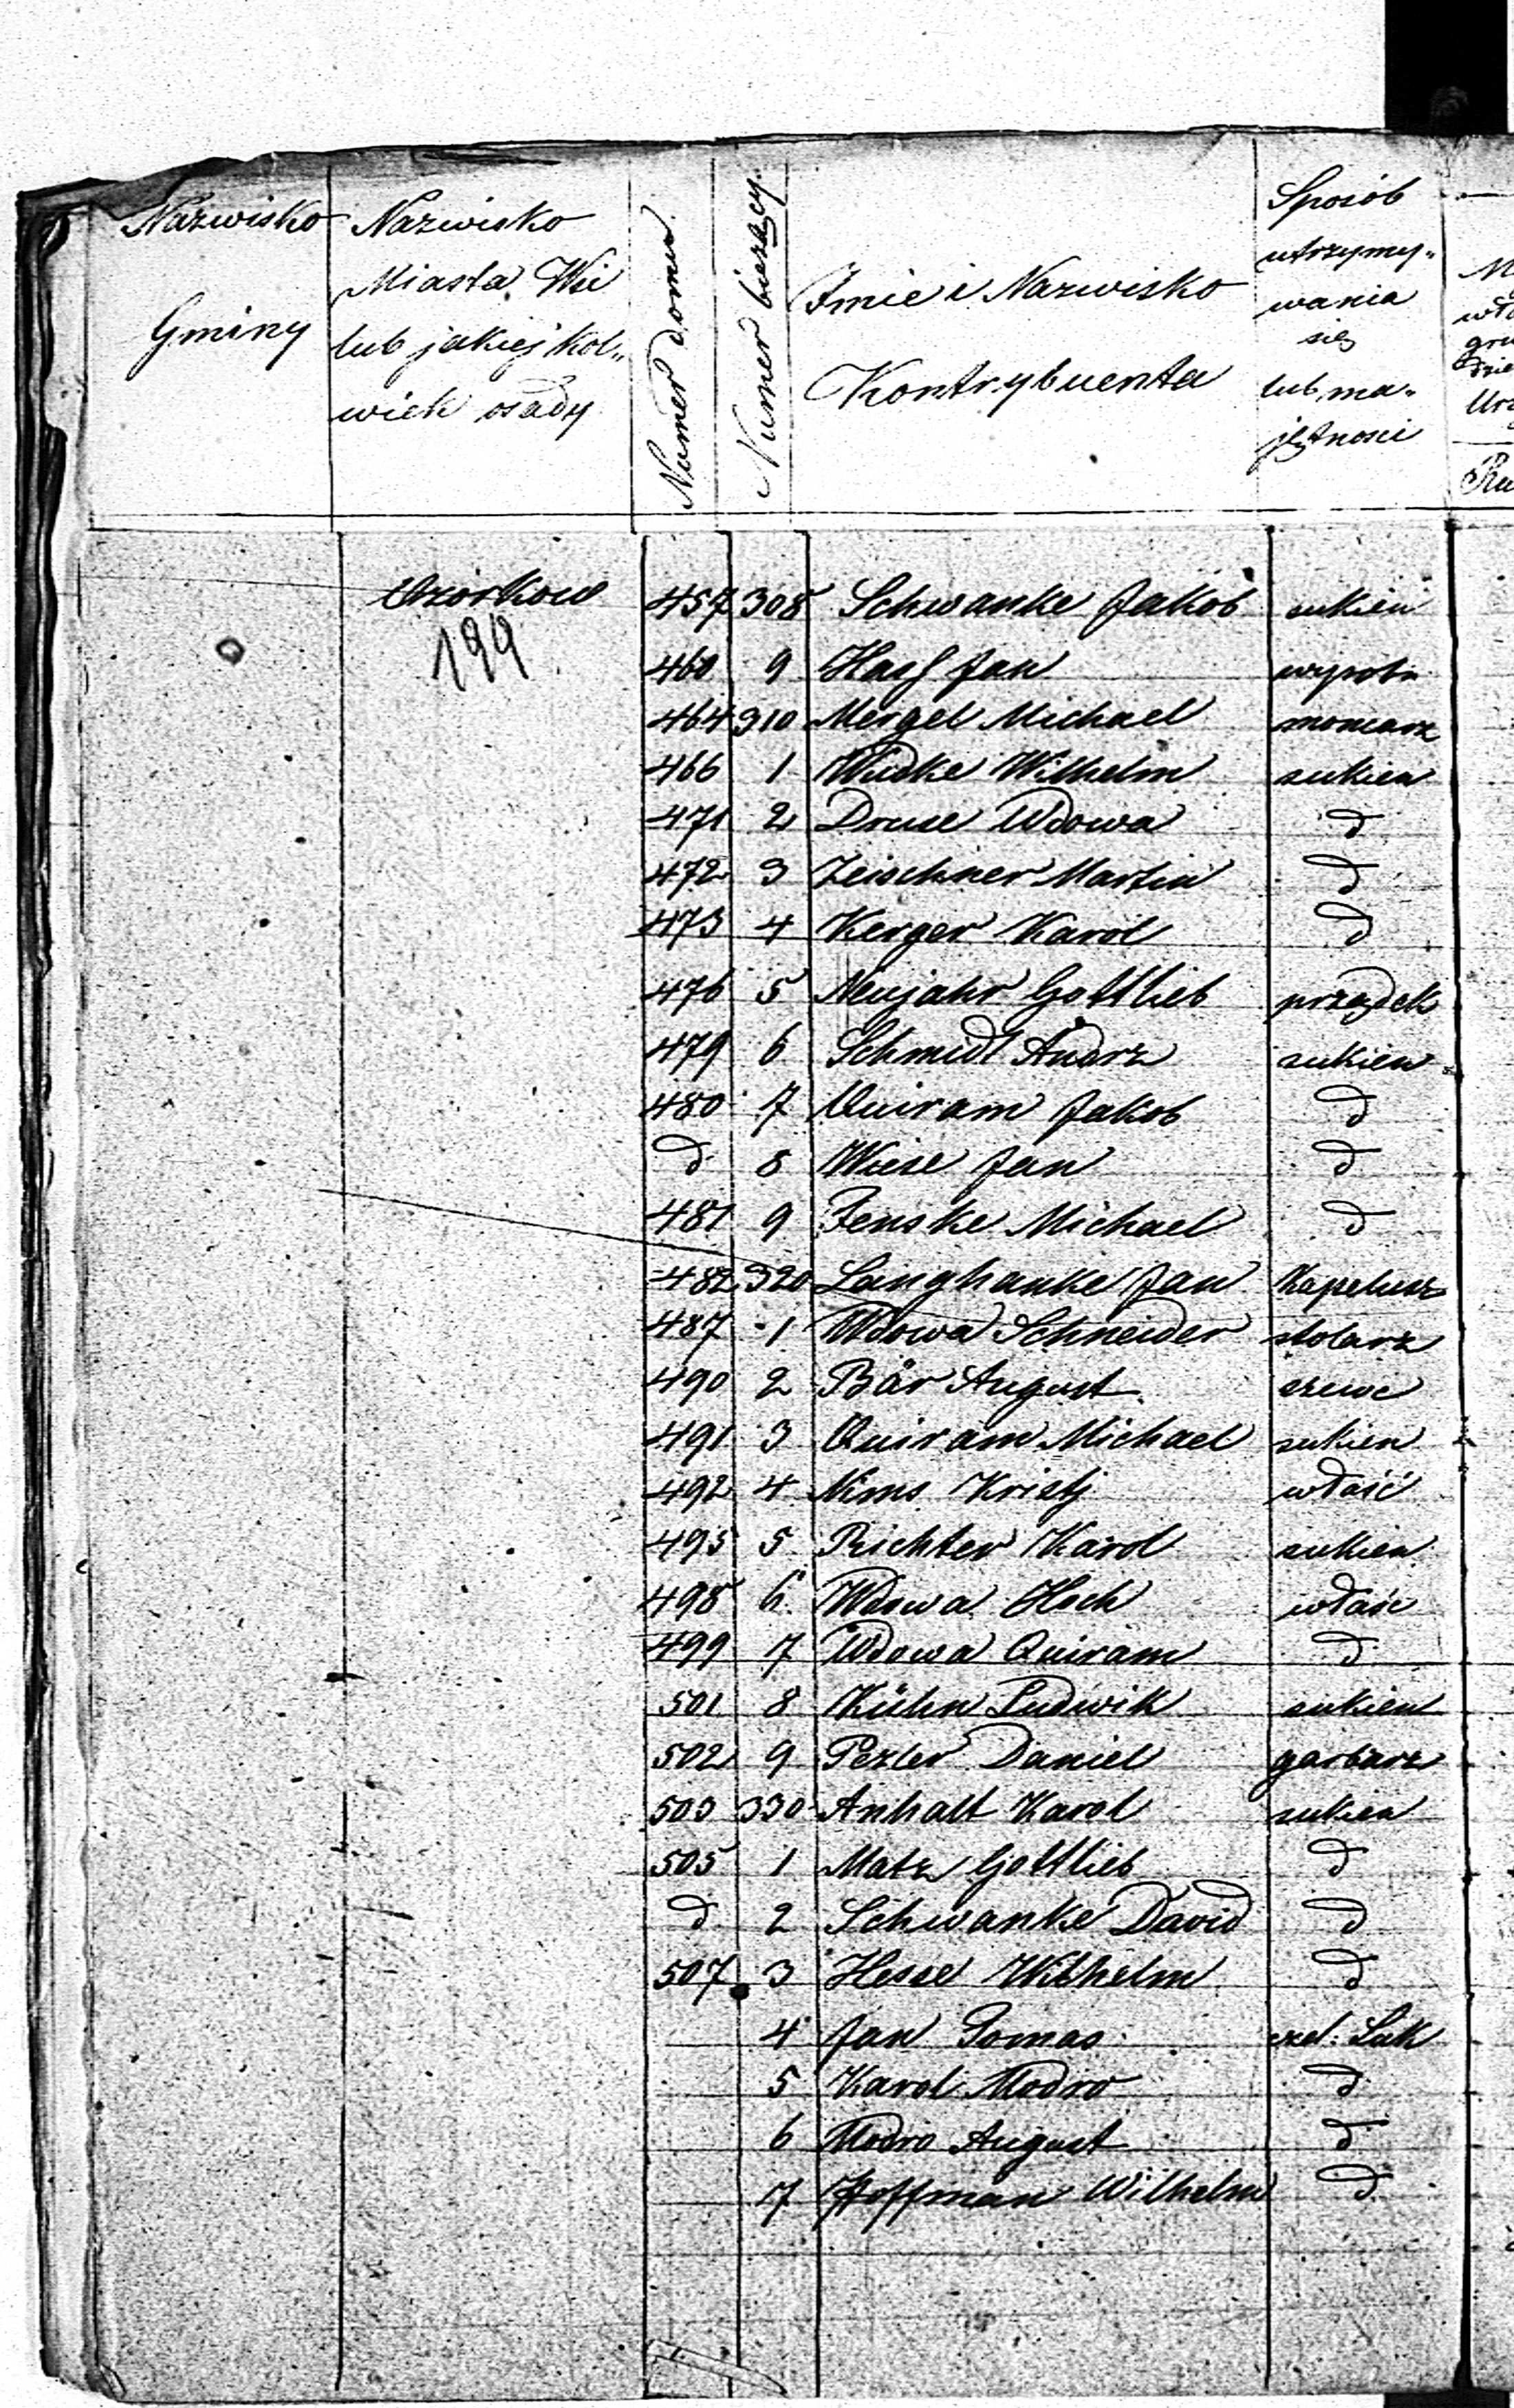 Nazwisko
Gminy
Nazwisko
Miasta Wsi
lub jakiej kol„
wiek osady
Numer domu
Numer bieżący.
Imie i Nazwisko
Kontrybuenta
Sposób
utrzymy„
wania
się
lub ma„
jętnosci
Ozorkow
199
457 308 Schwanke Jakob sukien
460 9 Hasf Jan wyrobn
464 310 Mergel Michael
466 1 Wudke Wilhelm sukien
471 2 Druse Wdowa d
472 3 Zeischner Martin d
473 4 Kerger Karol d
476 5 Neujahr Gottlieb prządek
479 6 Schmidt Andrz sukien
480 7 Quiram Jakob d
d 8 Wiese Jan d
481 9 Fenske Michael d
482 320 Langhanke Jan Kapelusz
487 1 Wdowa Schneider stolarz
490 2 Bär August szewc
491 3 Quiram Michael sukien
492 4 Nims Kristj właść
495 5 Richter Karol sukien
498 6 Wdowa Hech właśc
499 7 Wdowa Quiram d
501 8 Kühn Ludwik sukien
502 9 Pezler Daniel garbarz
503 330 Anhalt Karol sukien
505 1 Matz Gottlieb d
d 2 Schwanke David d
507 3 Hesse Wilhelm d
4 Jan Tomas czel: Suk
5 Karol Modro d
6 Modro August d
7 Hoffman Wilhelm d